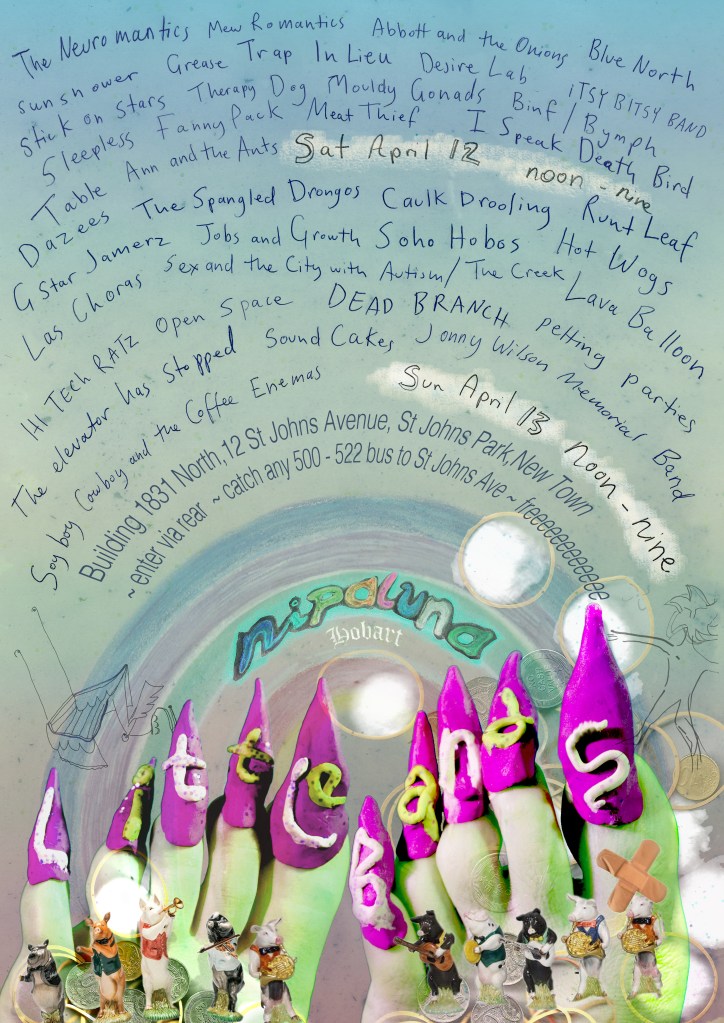 The Neuromantics Mew Romantics Abbott and the Onions Blue North
sunshower Grease Trap In Lieu Desire Lab iTSY BiTSY BAND
Stick on Stars Therapy Dog Mouldy Gonads Binf/Bymph
Sleepless FannyPack Meat Thief I Speak Death Bird
Table Ann and the Ants Sat April 12 noon - nine
Dazees The Spangled Drongos Caulk Drooling Runt Leaf
G Star Jamerz Jobs and Growth Soho Hobos Hot Wogs
Las Choras Sex and the City with Autism/The Creek Lava Balloon
HI TECH RATZ Open Space DEAD BRANCH petting parties
The elevator has stopped Sound Cakes Jonny Wilson Memorial Band
Soy boy Cowboy and the Coffee Enemas Sun April 13 noon - nine
Building 1831 North,12 St Johns Avenue, St Johns Park,New Town
~ enter via rear ~ catch any 500 - 522 bus to St Johns Ave ~ freeeeeeeeeeeee
nipaluna
Hobart
LittLe Bands